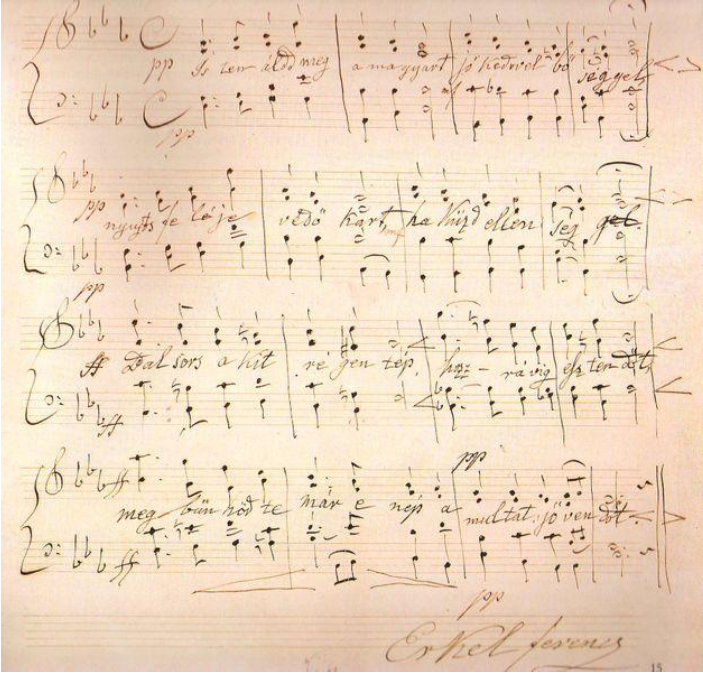 pp Is ten áldd meg a magyart jó kedvel bö séggel,
pp
pp nyujts fe léje védö kart, ha küzd ellen ség gel.
pp
ff Bal sors a kit ré gen tép, hoz - rá víg esz ten döt,
ff
ff pp
meg bün höd te már e nép a multat jö ven döt
ff
pp
Erkel ferencz
15